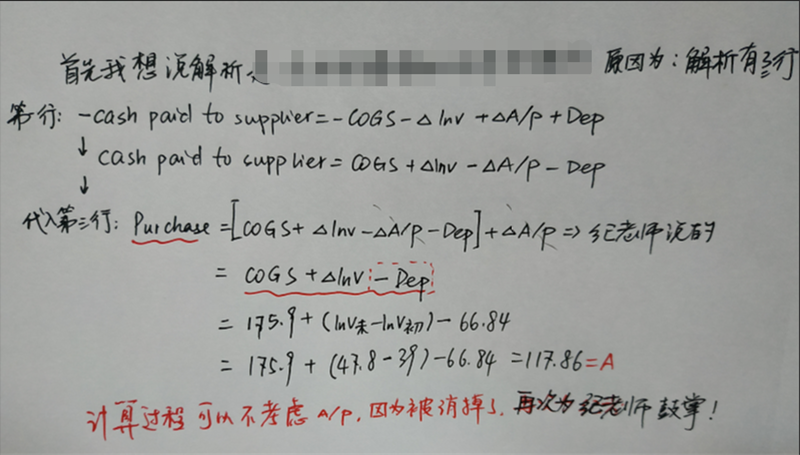 首先我想说解析 原因为：解析有三行
第一行： -cash paid to supplier=-COGS-Δ Inv +ΔA/P+Dep
↓ cash paid to supplier = COGS +ΔInv -ΔA/P-Dep
↓
代入第三行：Purchase =[COGS+ ΔInv-ΔA/P-Dep]+ΔA/P => 纪老师说的
= COGS+ΔInv-Dep
= 175.9+(Inv末-Inv初)-66.84
= 175.9+(47.8-39)-66.84 =117.86=A
计算过程可以不考虑A/P，因为被消掉了，再次为纪老师鼓掌！